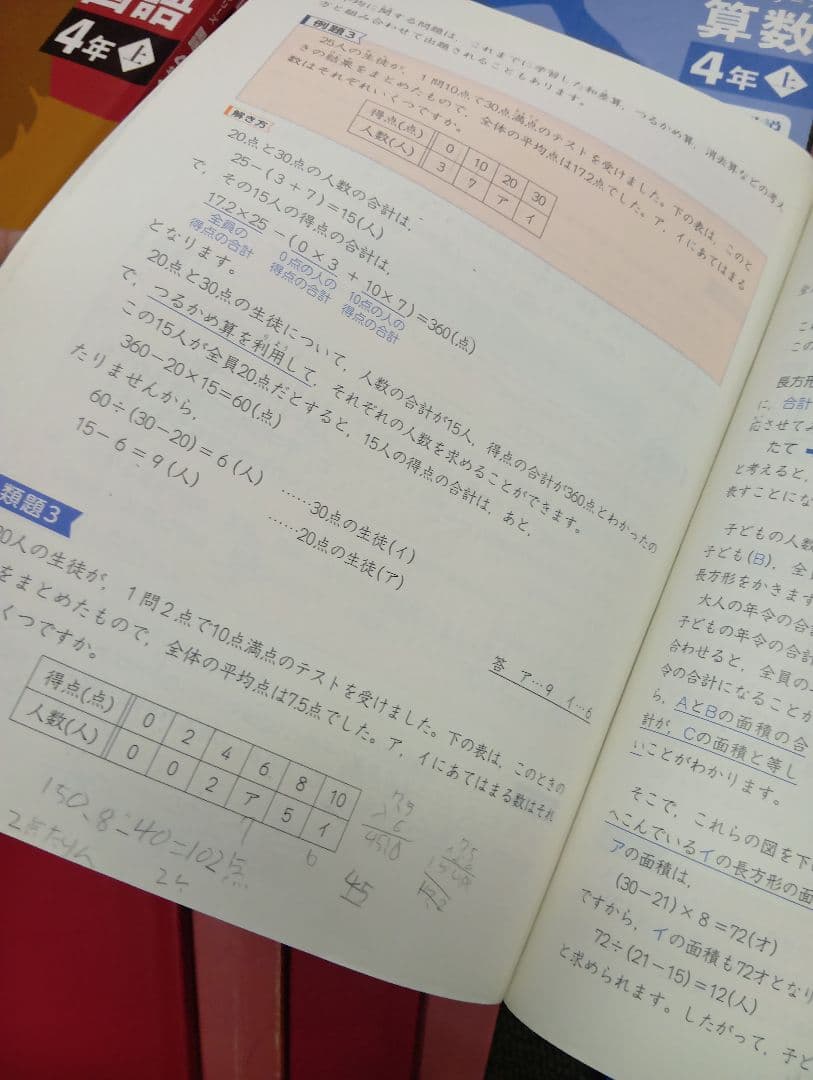 4年上
算数
4年上
均に関する問題は、これまでに学習した和差算、つるかめ算、消去算などの考え
方と組み合わせて出題されることもあります。
例題3
25人の生徒が、1問10点で30点満点のテストを受けました。下の表は、このと
きの結果をまとめたもので、全体の平均点は17.2点でした。ア、イにあてはまる
数はそれぞれいくつですか。
得点(点) 0 10 20 30
人数(人) 3 7 ア イ
解き方
20点と30点の人数の合計は、
25−(3+7)=15(人)
で、その15人の得点の合計は、
17.2×25−(0×3+10×7)=360(点)
全員の得点の合計 0点の人の得点の合計 10点の人の得点の合計
となります。
20点と30点の生徒について、人数の合計が15人、得点の合計が360点とわかったの
で、つるかめ算を利用して、それぞれの人数を求めることができます。
この15人が全員20点だとすると、15人の得点の合計は、あと、
360−20×15=60(点)
たりませんから、
60÷(30−20)=6(人) ……30点の生徒(イ)
15−6=9(人) ……20点の生徒(ア)
答 ア…9 イ…6
類題3
0人の生徒が、1問2点で10点満点のテストを受けました。下の表は、このときの
をまとめたもので、全体の平均点は7.5点でした。ア、イにあてはまる数はそれ
くつですか。
得点(点) 0 2 4 6 8 10
人数(人) 0 0 2 ア 5 イ
150-8-40=102点
6
45
長方形
に、合計
応させてみ
たて
と考えると、
表すことにな
子どもの人数
子ども(B)、全
長方形をかきます
大人の年令の合計
子どもの年令の合計
合わせると、全員の
令の合計になることが
ら、AとBの面積の合
計が、Cの面積と等し
いことがわかります。
そこで、これらの図を下
へこんでいるイの長方形の面
アの面積は、
(30−21)×8=72(オ)
ですから、イの面積も72オとなり
72÷(21−15)=12(人)
と求められます。したがって、子ど